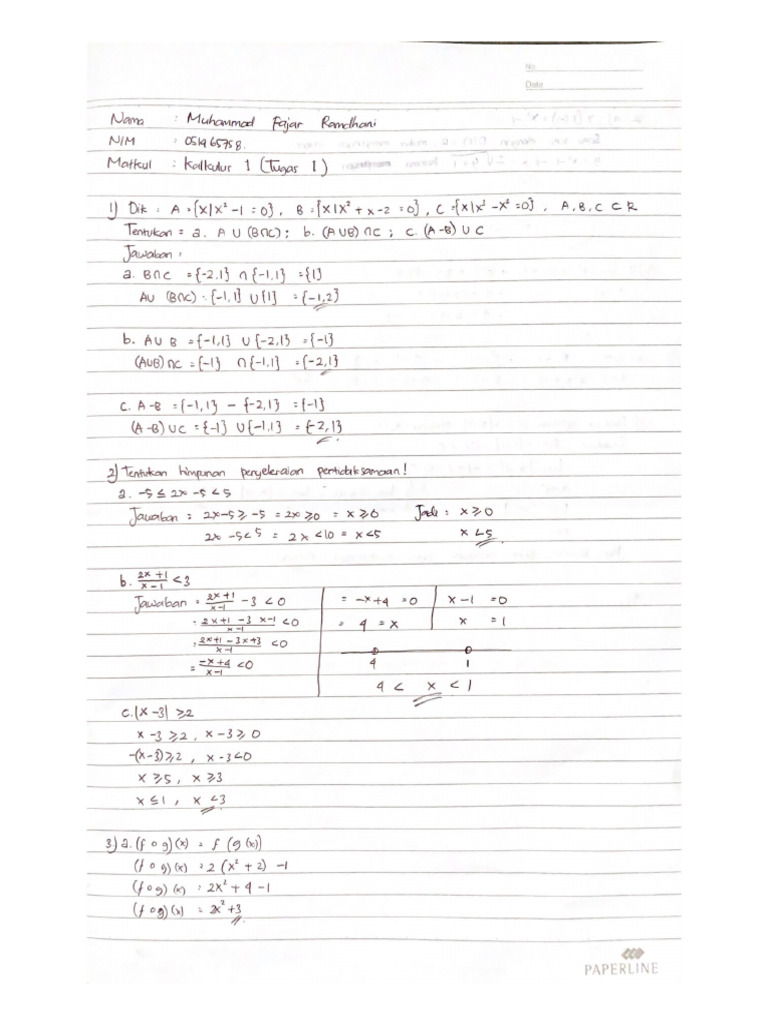 No
Date
Nama : Muhammad Fajar Ramdhani
NIM : 051965758.
Matkul : Kalkulus 1 (Tugas 1)
1) Dik : A = {x|x² -1 = 0}, B = {x|x² + x - 2 = 0}, C = {x|x² - x² = 0}, A, B, C ⊂ R
Tentukan = a. A ∪ (B∩C) ; b. (A∪B) ∩C ; c. (A-B) ∪ C
Jawaban :
a. B∩C = {-2,1} ∩ {-1,1} = {1}
A∪ (B∩C) : {-1,1} ∪ {1} = {-1,2}
b. A∪B = {-1,1} ∪ {-2,1} = {-1}
(A∪B) ∩C = {-1} ∩ {-1,1} = {-2,1}
c. A-B = {-1,1} - {-2,1} = {-1}
(A-B) ∪C = {-1} ∪ {-1,1} = {-2,1}
2) Tentukan himpunan penyelesaian pertidaksamaan!
a. -5 ≤ 2x -5 < 5
Jawaban = 2x-5 ≥ -5 = 2x ≥ 0 = x ≥ 0 Jadi : x ≥ 0
2x -5 < 5 = 2x < 10 = x < 5 x < 5
b. (2x+1)/(x-1) < 3
Jawaban = (2x+1)/(x-1) - 3 < 0 = -x+4 = 0 x-1 = 0
: (2x+1 - 3 x-1)/(x-1) < 0 = 4 = x x = 1
: (2x+1 - 3x+3)/(x-1) < 0
= (-x+4)/(x-1) < 0 4 1
4 < x < 1
c. |x -3| ≥ 2
x -3 ≥ 2, x -3 ≥ 0
-(x-3) ≥ 2, x -3 < 0
x ≥ 5, x ≥ 3
x ≤ 1, x < 3
3) a. (f o g)(x) = f (g(x))
(f o g)(x) : 2 (x² + 2) -1
(f o g) (x) : 2x² + 4 -1
(f o g)(x) = 2x² + 3
PAPERLINE